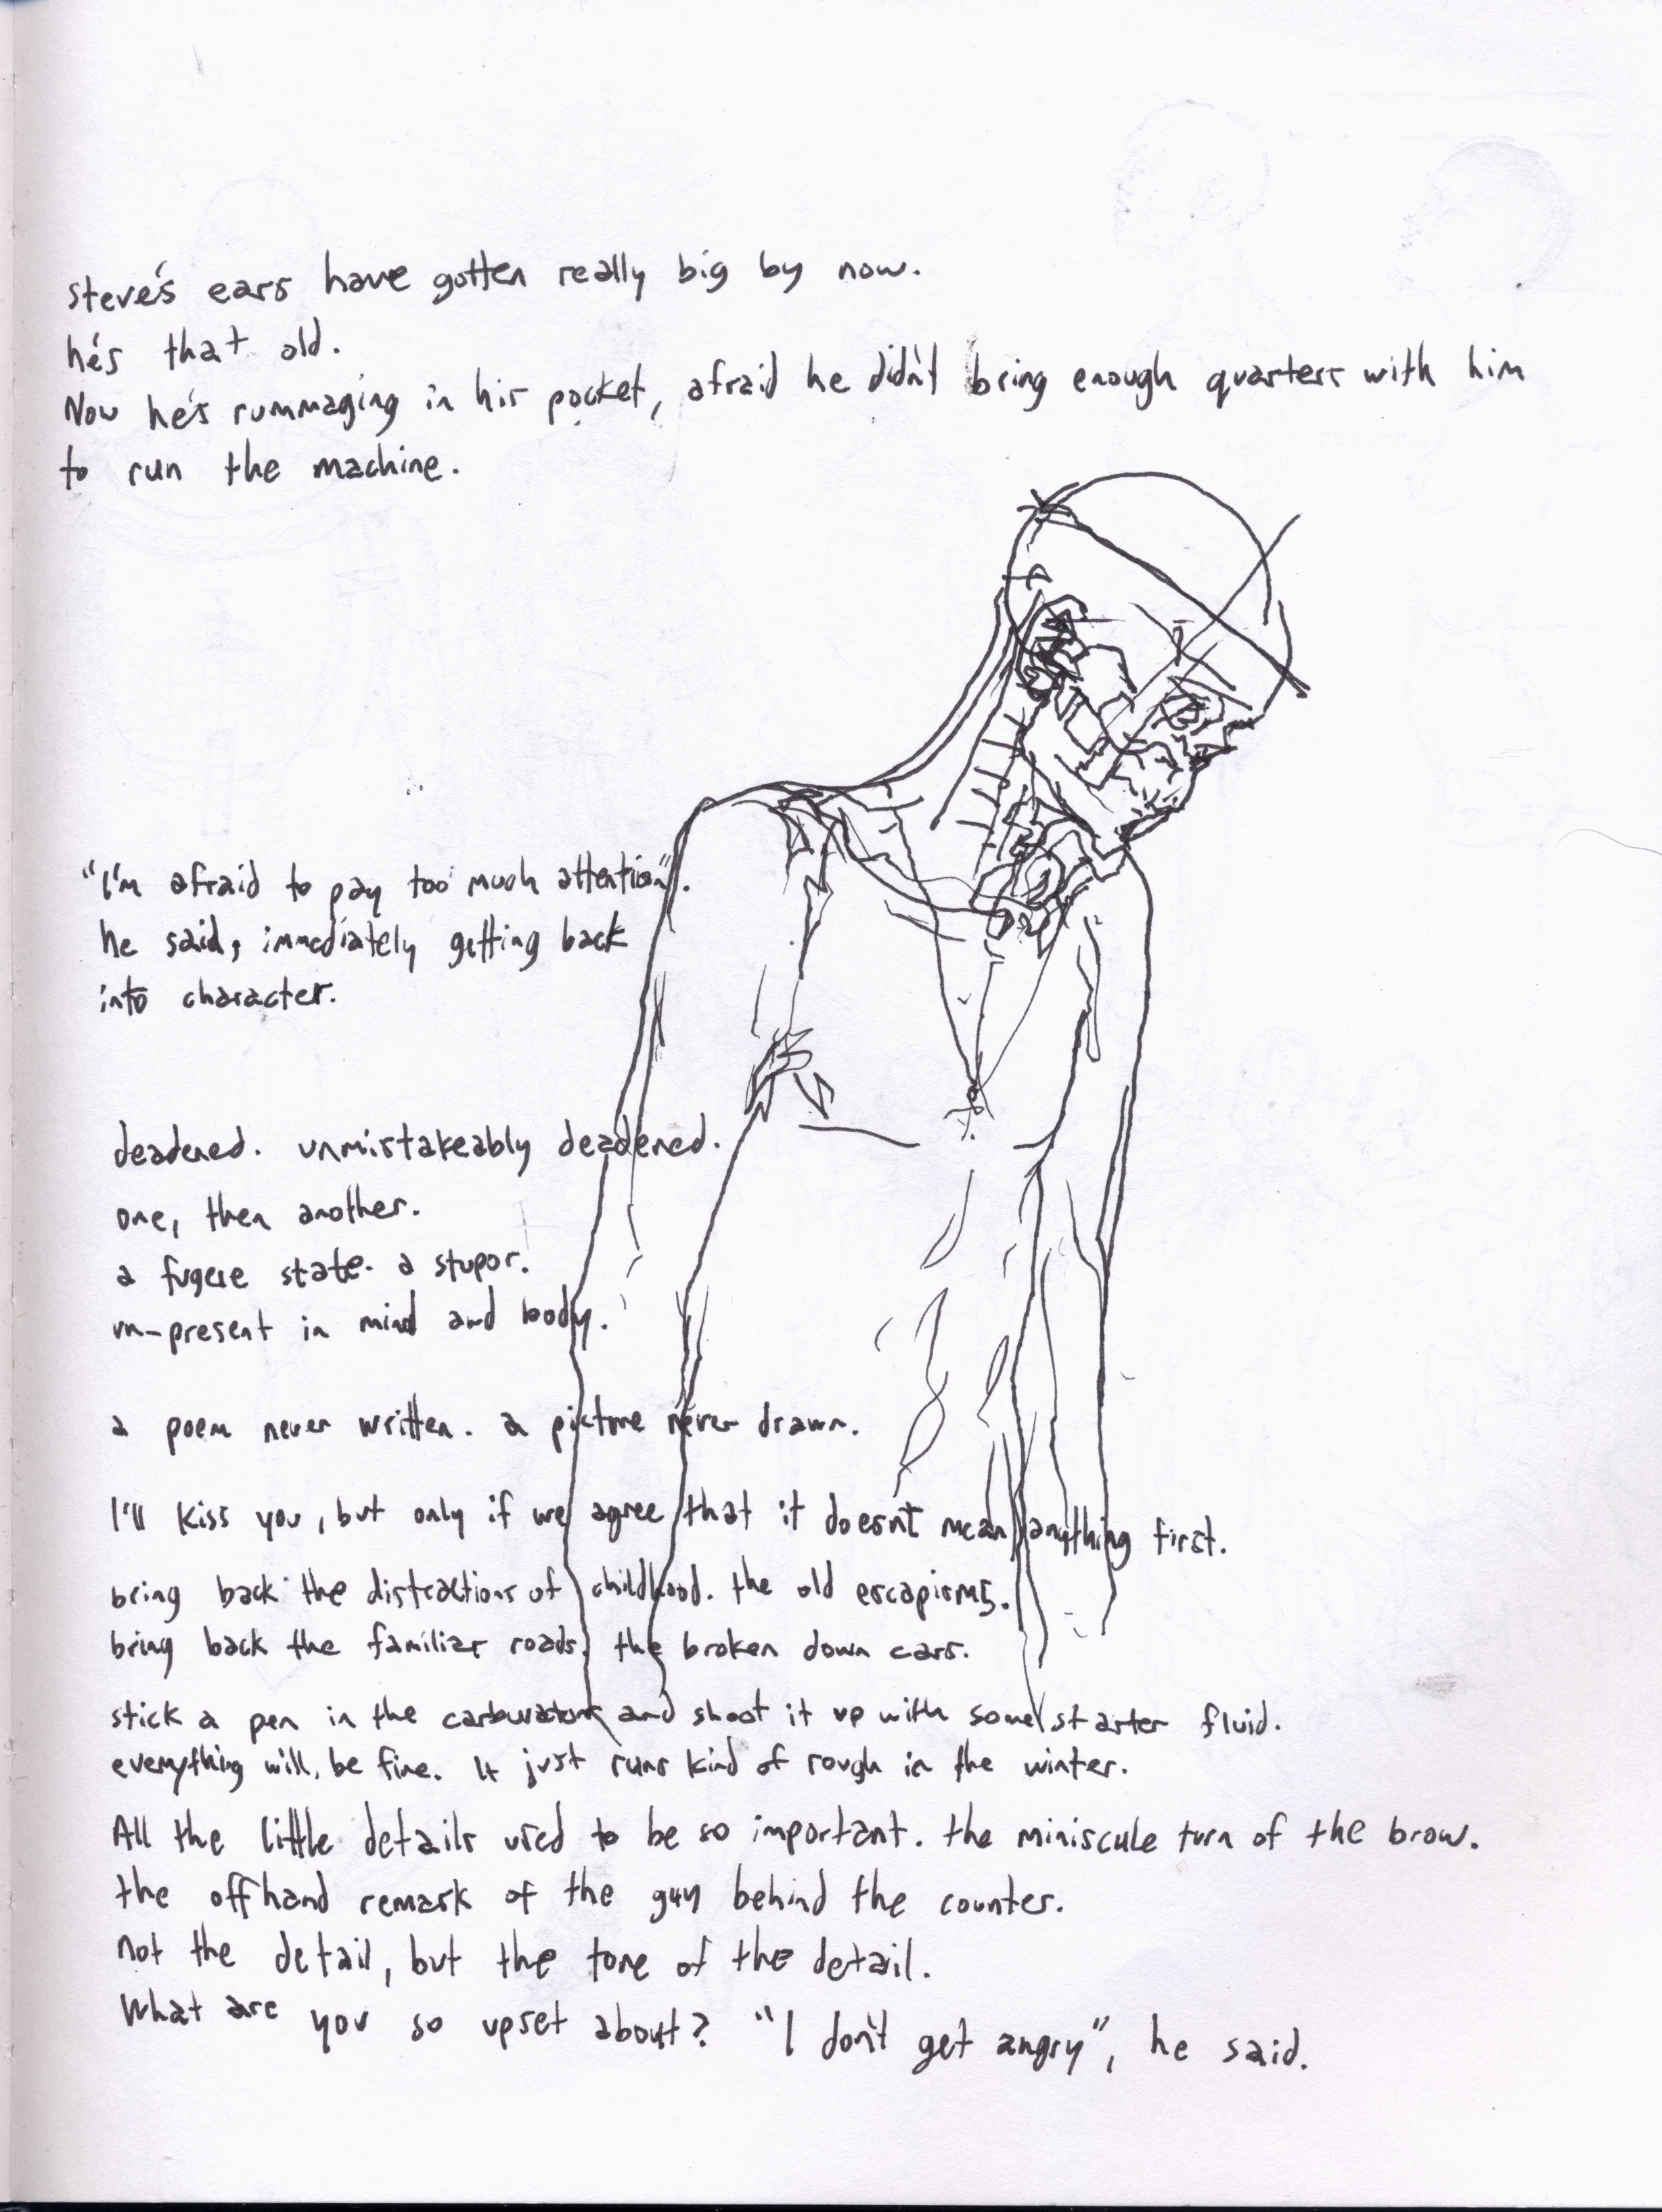 steve's ears have gotten really big by now.
he's that old.
Now he's rummaging in his pocket, afraid he didn't bring enough quarters with him
to run the machine.
"I'm afraid to pay too much attention".
he said, immediately getting back
into character.
deadened. unmistakeably deadened.
one, then another.
a fugere state. a stupor.
un-present in mind and body.
a poem never written. a picture never drawn.
I'll kiss you, but only if we agree that it doesn't mean anything first.
bring back the distractions of childhood. the old escapisms.
bring back the familiar roads, the broken down cars.
stick a pen in the carburator and shoot it up with some starter fluid.
everything will be fine. It just runs kind of rough in the winter.
All the little details used to be so important. the miniscule turn of the brow.
the offhand remark of the guy behind the counter.
not the detail, but the tone of the detail.
What are you so upset about? "I don't get angry", he said.